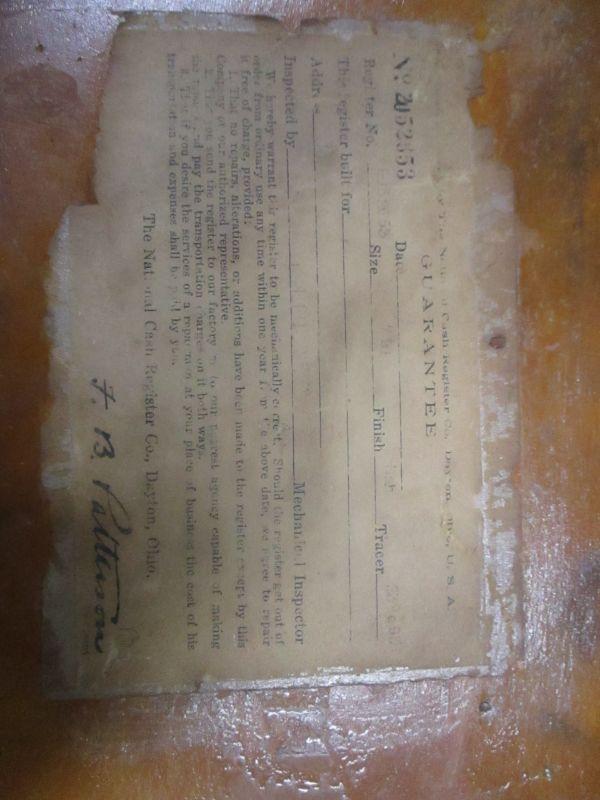 of The National Cash Register Co., Dayton, Ohio, U. S. A.
GUARANTEE
No. 2052353 Date
Register No. Size Finish Tracer
This register built for
Address
Inspected by Mechanical Inspector
We hereby warrant this register to be mechanically correct. Should the register get out of
order from ordinary use any time within one year from the above date, we agree to repair
it free of charge, provided:
1. That no repairs, alterations, or additions have been made to the register except by this
Company or our authorized representative.
2. That you send the register to our factory or to our nearest agency capable of making
the and pay the transportation charges on it both ways.
3. That if you desire the services of a repairman at your place of business the cost of his
transportation and expenses shall be paid by you.
The National Cash Register Co., Dayton, Ohio.
F. B. Patterson